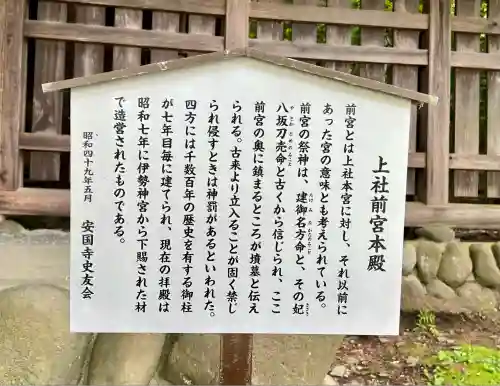 上社前宮本殿
前宮とは上社本宮に対し、それ以前に
あった宮の意味とも考えられている。
前宮の祭神は、建御名方命と、その妃
八坂刀売命と古くから信じられ、ここ
前宮の奥に鎮まるところが墳墓と伝え
られる。古来より立入ることが固く禁じ
られ侵すときは神罰があるといわれた。
四方には千数百年の歴史を有する御柱
が七年目毎に建てられ、現在の拝殿は
昭和七年に伊勢神宮から下賜された材
で造営されたものである。
昭和四十九年五月 安国寺史友会